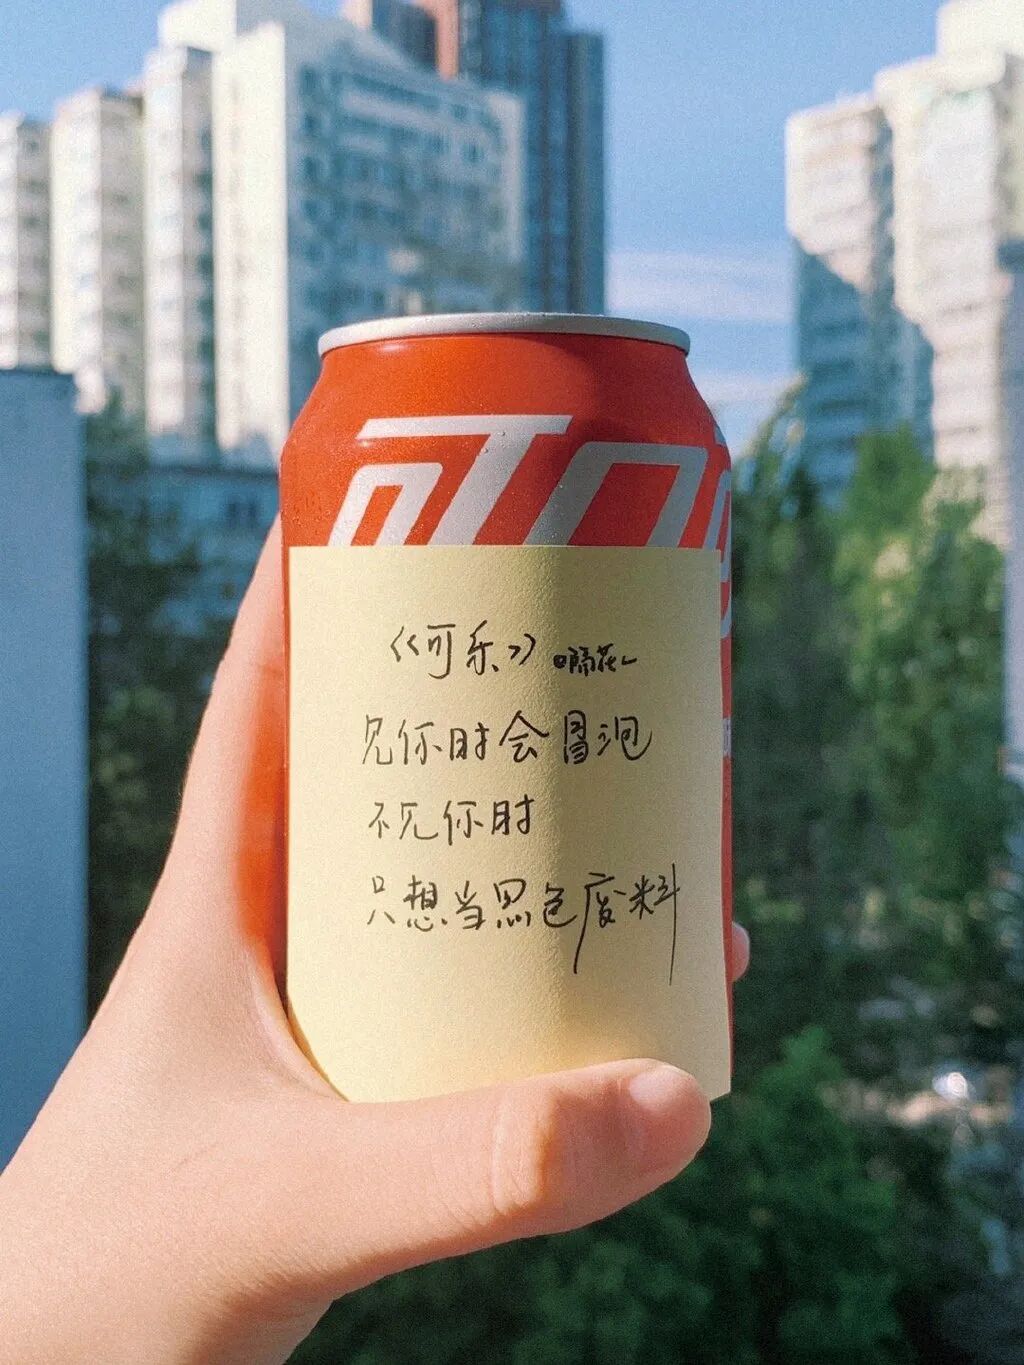 可口
《可乐》 隔花
见你时会冒泡
不见你时
只想当黑色废料